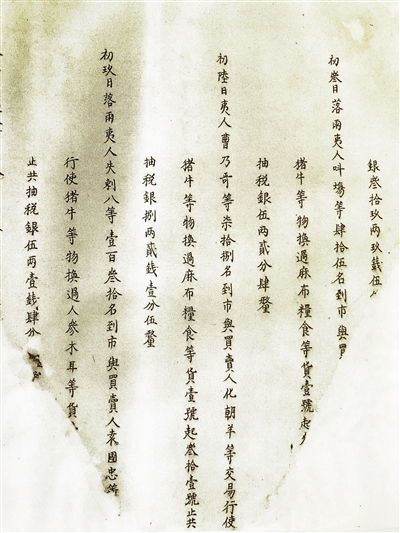 銀叁拾玖兩玖錢伍
初叁日落雨夷人叫場等肆拾伍名到市與買
猪牛等物換過麻布糧食等貨壹號起
抽税銀伍兩貳分肆釐
初陸日夷人曹乃奇等柒拾捌名到市與買賣人化朝羊等交易行使
猪牛等物換過麻布糧食等貨壹號起叁拾壹號止共
抽税銀捌兩貳錢壹分伍釐
初玖日落雨夷人失剌八等壹百叁拾名到市與買賣人袁國忠等
行使猪牛等物換過人參木耳等貨
止共抽税銀伍兩壹錢肆分